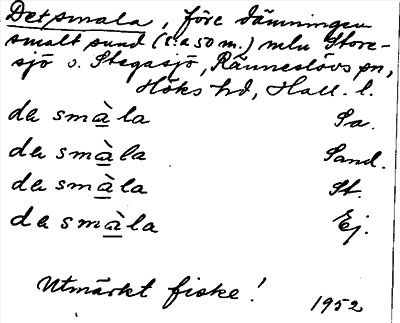 Det smala, före dämningen
smalt sund (c:a 50 m.) mlu Store-
sjö o. Stegasjö, Ränneslövs sn,
Höks hd, Hall. l.
da smà̲la Sa.
da smà̲la Sand.
da smà̲la St.
da smà̲la Ej.
Utmärkt fiske!
1952